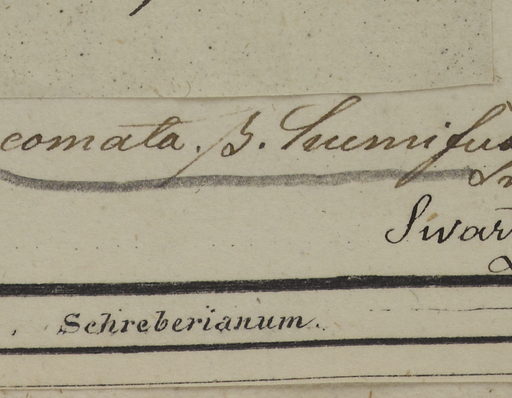 comata. β. humifus
Swar
Schreberianum.